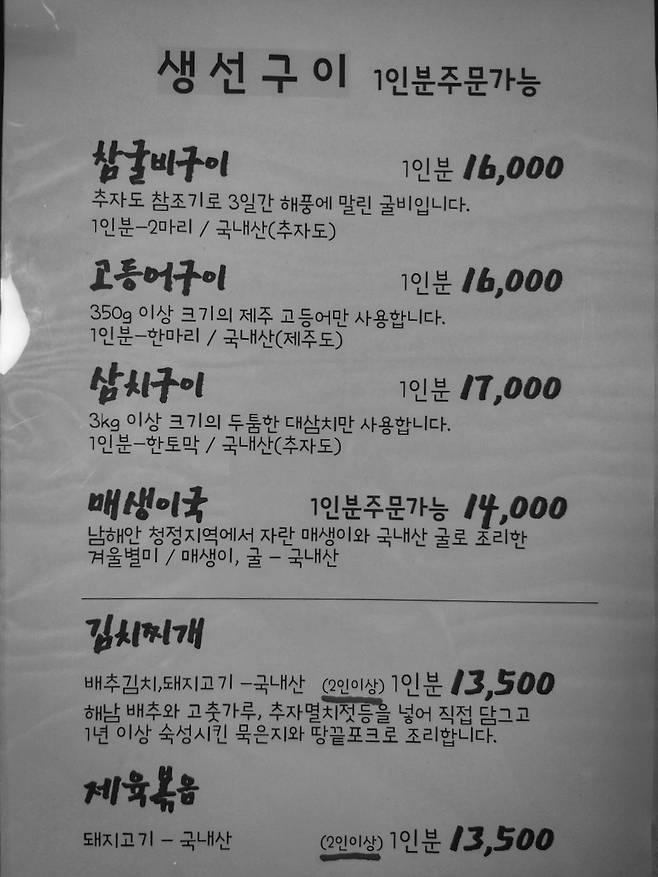 생선구이 1인분주문가능
참굴비구이 1인분 16,000
추자도 참조기로 3일간 해풍에 말린 굴비입니다.
1인분-2마리 / 국내산(추자도)
고등어구이 1인분 16,000
350g 이상 크기의 제주 고등어만 사용합니다.
1인분-한마리 / 국내산(제주도)
삼치구이 1인분 17,000
3kg 이상 크기의 두툼한 대삼치만 사용합니다.
1인분-한토막 / 국내산(추자도)
매생이국 1인분주문가능 14,000
남해안 청정지역에서 자란 매생이와 국내산 굴로 조리한
겨울별미 / 매생이, 굴 - 국내산
김치찌개
배추김치,돼지고기 -국내산 (2인이상) 1인분 13,500
해남 배추와 고춧가루, 추자멸치젓등을 넣어 직접 담그고
1년 이상 숙성시킨 묵은지와 땅끝포크로 조리합니다.
제육볶음
돼지고기 - 국내산 (2인이상) 1인분 13,500